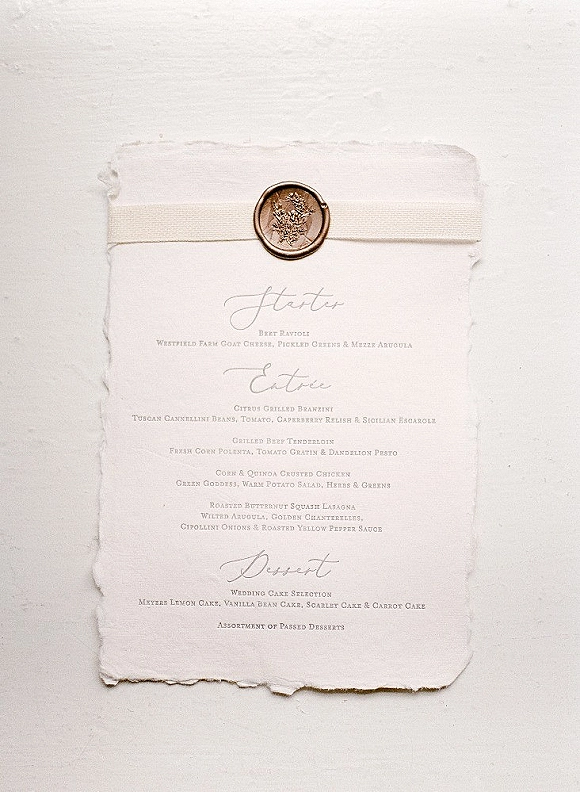 Starter
Beet Ravioli
Westfield Farm Goat Cheese, Pickled Greens & Mezze Arugula
Entrée
Citrus Grilled Branzini
Tuscan Cannellini Beans, Tomato, Caperberry Relish & Sicilian Escarole
Grilled Beef Tenderloin
Fresh Corn Polenta, Tomato Gratin & Dandelion Pesto
Corn & Quinoa Crusted Chicken
Green Goddess, Warm Potato Salad, Herbs & Greens
Roasted Butternut Squash Lasagna
Wilted Arugula, Golden Chanterelles,
Cipollini Onions & Roasted Yellow Pepper Sauce
Dessert
Wedding Cake Selection
Meyers Lemon Cake, Vanilla Bean Cake, Scarlet Cake & Carrot Cake
Assortment of Passed Desserts